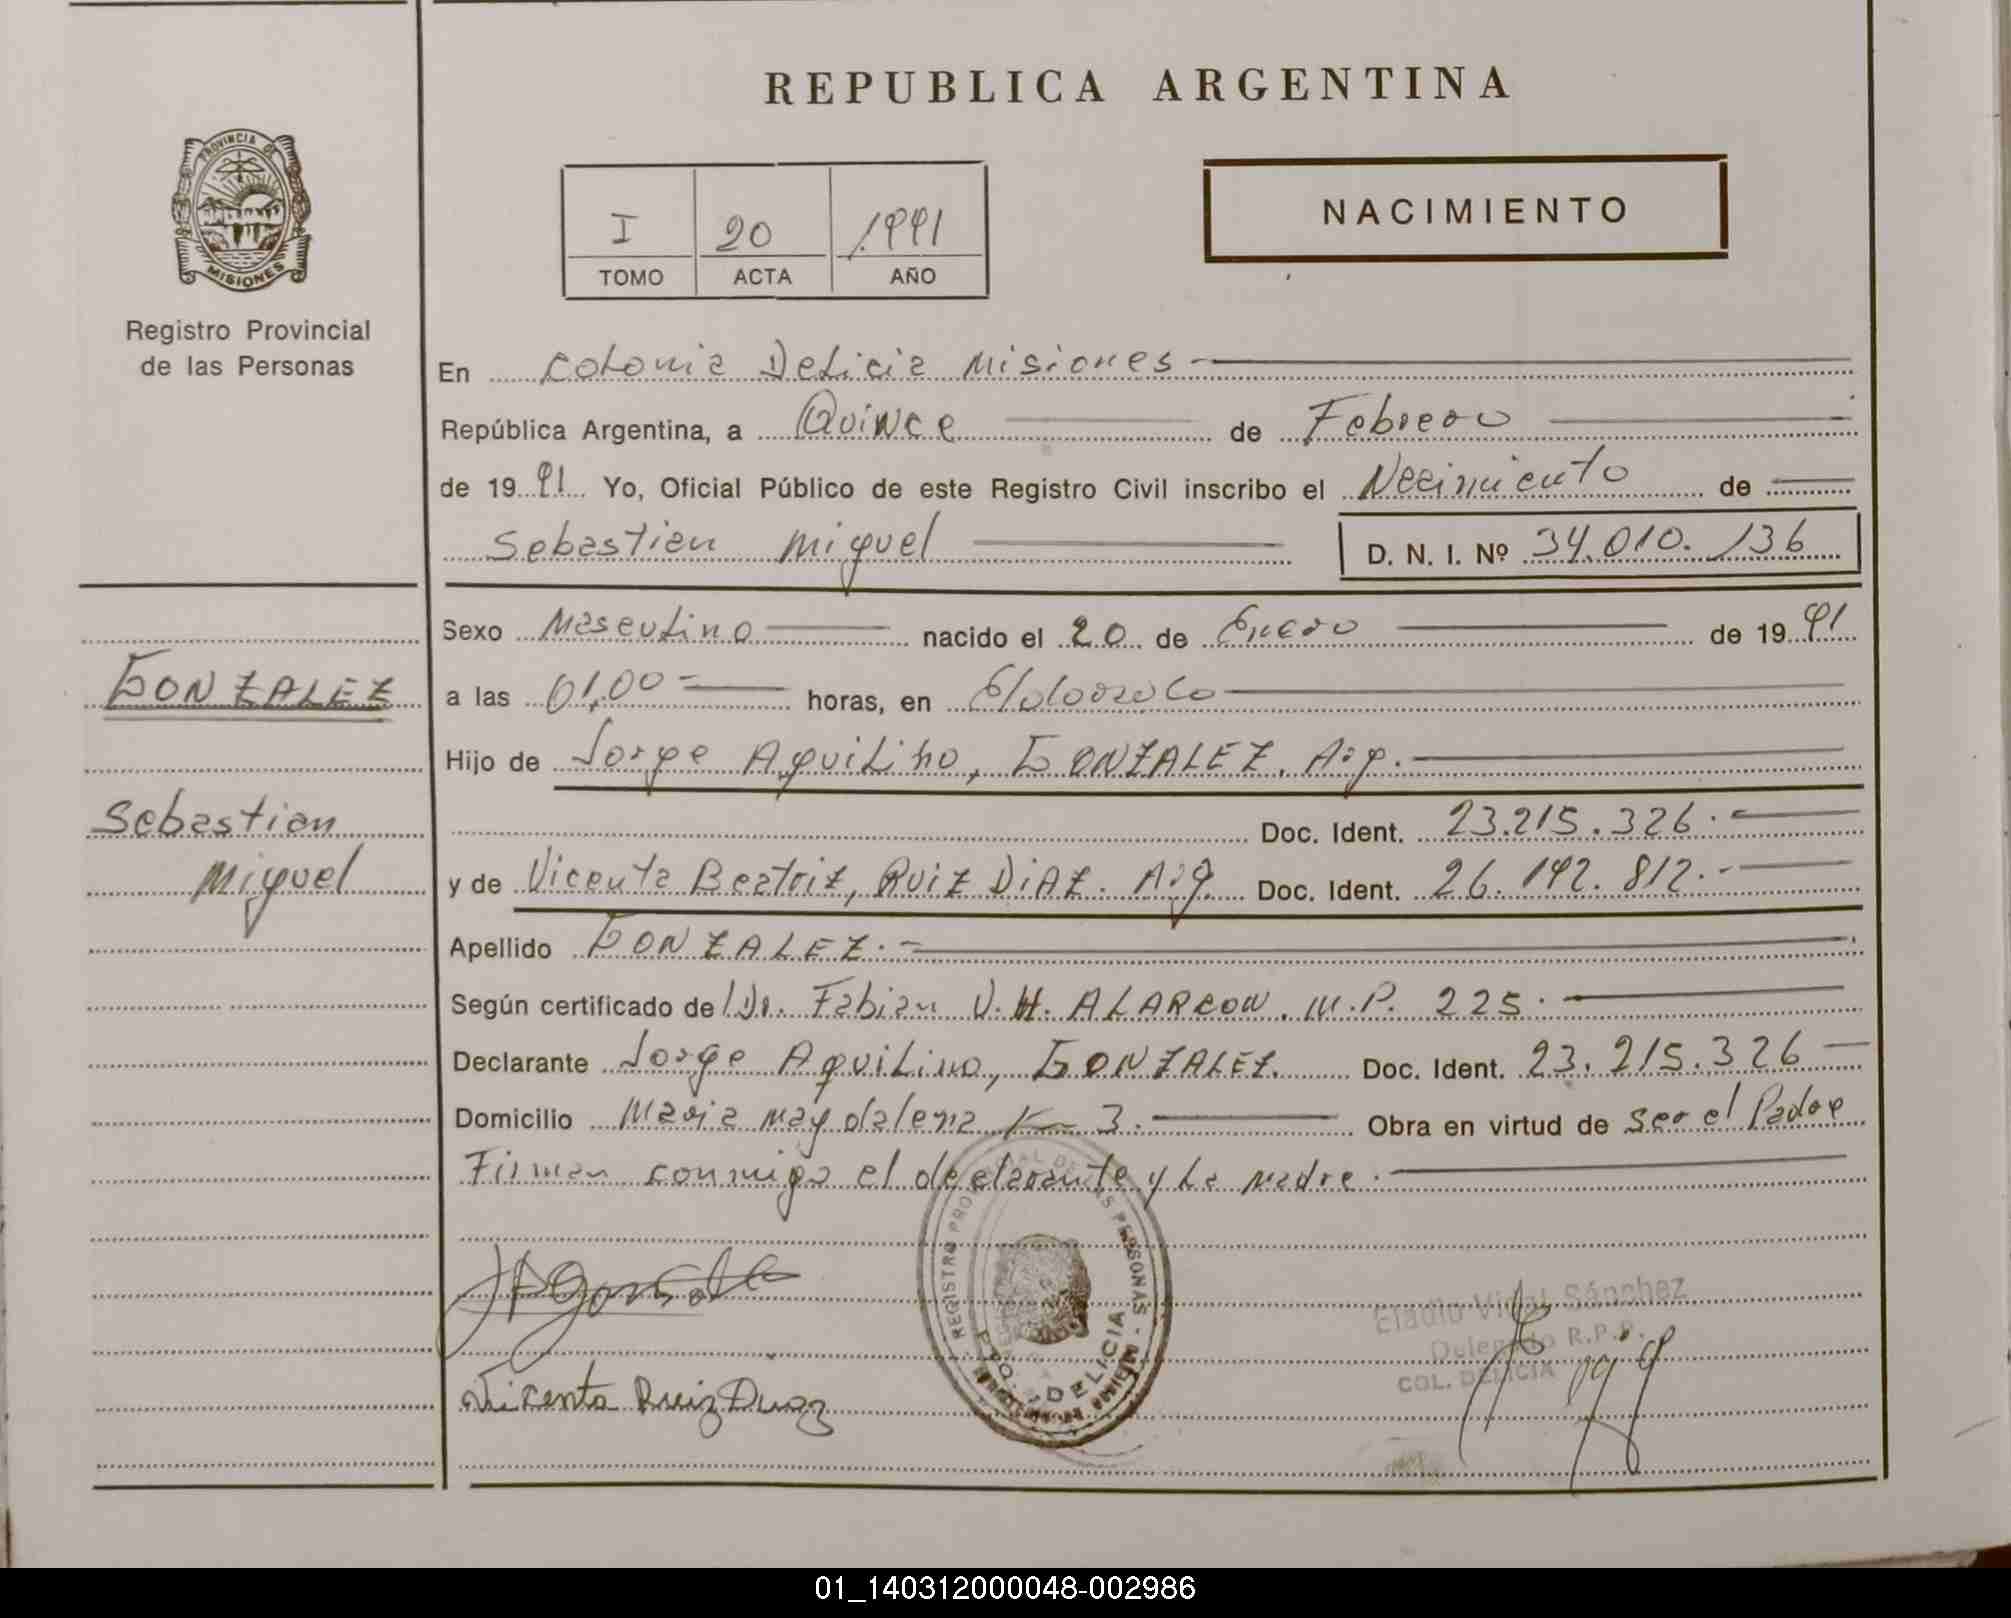 REPUBLICA ARGENTINA
PROVINCIA DE
MISIONES
Registro Provincial
de las Personas
I 20 1991
TOMO ACTA AÑO
NACIMIENTO
En Colonia Delicia Misiones
República Argentina, a Quince de Febrero
de 1991 Yo, Oficial Público de este Registro Civil inscribo el Nacimiento de
Sebastian Miguel D. N. I. Nº 34.010.136
GONZALEZ
Sebastian
Miguel
Sexo Masculino nacido el 20 de Enero de 1991
a las 01,00 horas, en Eldorado
Hijo de Jorge Aquilino, GONZALEZ. Arg.
Doc. Ident. 23.215.326.
y de Vicenta Beatriz, RUIZ DIAZ. Arg. Doc. Ident. 26.192.812.
Apellido GONZALEZ.
Según certificado de Dr. Fabian V.H. ALARCON. M.P. 225.
Declarante Jorge Aquilino, GONZALEZ. Doc. Ident. 23.215.326
Domicilio Maria Magdalena K 3. Obra en virtud de ser el Padre
Firman conmigo el declarante y La madre.
REGISTRO PROVINCIAL DE LAS PERSONAS - MISIONES
DELICIA
Vicenta Ruiz Diaz
Eladio Vidal Sánchez
Delegado R.P.P.
COL. DELICIA
01_140312000048-002986